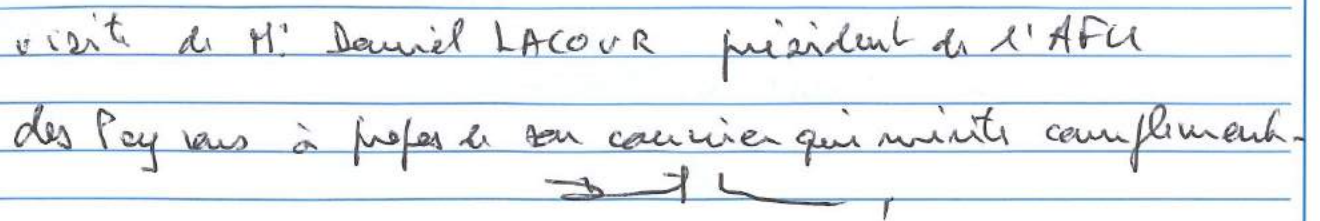 visite de Mr Daniel LACOUR président de l'AFU
des Paysans à propos de son courrier qui mérite complément.